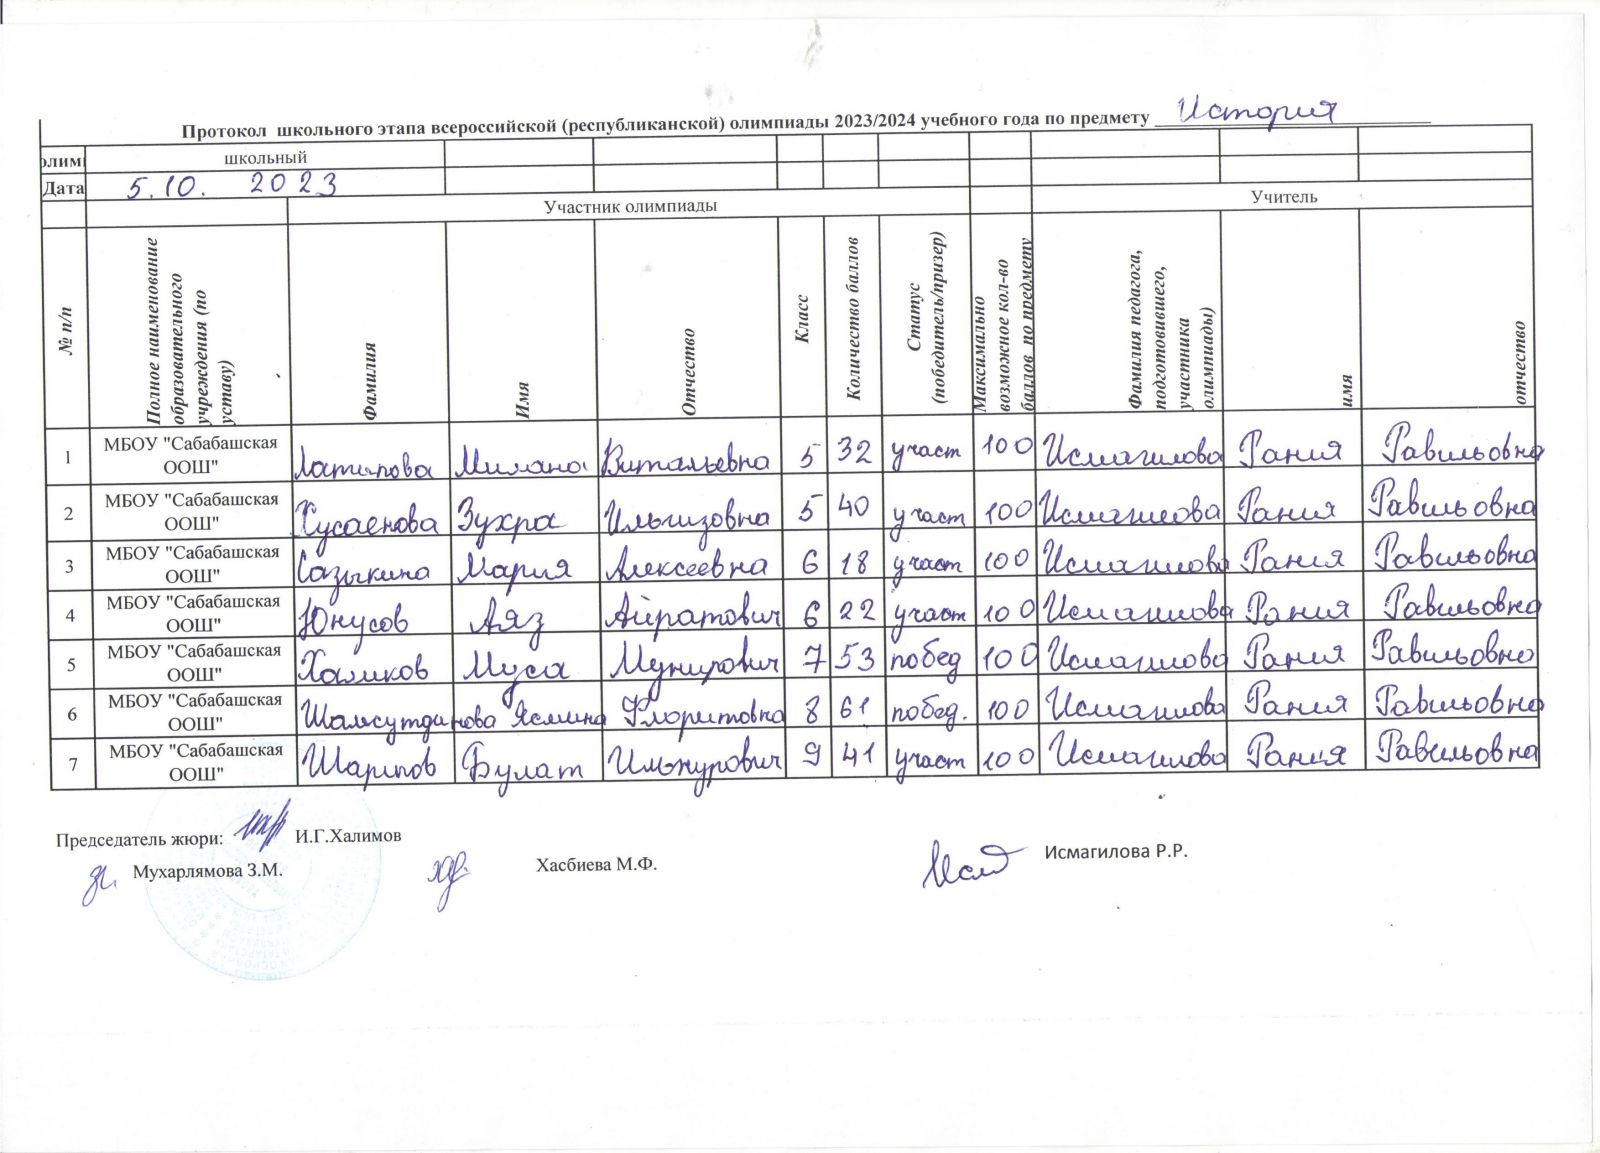 Протокол школьного этапа всероссийской (республиканской) олимпиады 2023/2024 учебного года по предмету История
олим школьный
Дата 5.10. 2023
Участник олимпиады Учитель
№ п/п Полное наименование образовательного учреждения (по уставу) Фамилия Имя Отчество Класс Количество баллов Статус (победитель/призер) Максимально возможное кол-во баллов по предмету Фамилия педагога, подготовившего, участника олимпиады) имя отчество
1 МБОУ "Сабабашская ООШ" Латыпова Милана Витальевна 5 32 участ 100 Исмагилова Рания Равильовна
2 МБОУ "Сабабашская ООШ" Хусаенова Зухра Ильгизовна 5 40 участ 100 Исмагилова Рания Равильовна
3 МБОУ "Сабабашская ООШ" Сазыкина Мария Алексеевна 6 18 участ 100 Исмагилова Рания Равильовна
4 МБОУ "Сабабашская ООШ" Юнусов Аяз Айратович 6 22 участ 100 Исмагилова Рания Равильовна
5 МБОУ "Сабабашская ООШ" Халиков Муса Мунирович 7 53 побед 100 Исмагилова Рания Равильовна
6 МБОУ "Сабабашская ООШ" Шамсутдинова Ясмина Флоритовна 8 61 побед. 100 Исмагилова Рания Равильовна
7 МБОУ "Сабабашская ООШ" Шарипов Булат Ильнурович 9 41 участ 100 Исмагилова Рания Равильовна
Председатель жюри: И.Г.Халимов
Мухарлямова З.М. Хасбиева М.Ф. Исмагилова Р.Р.